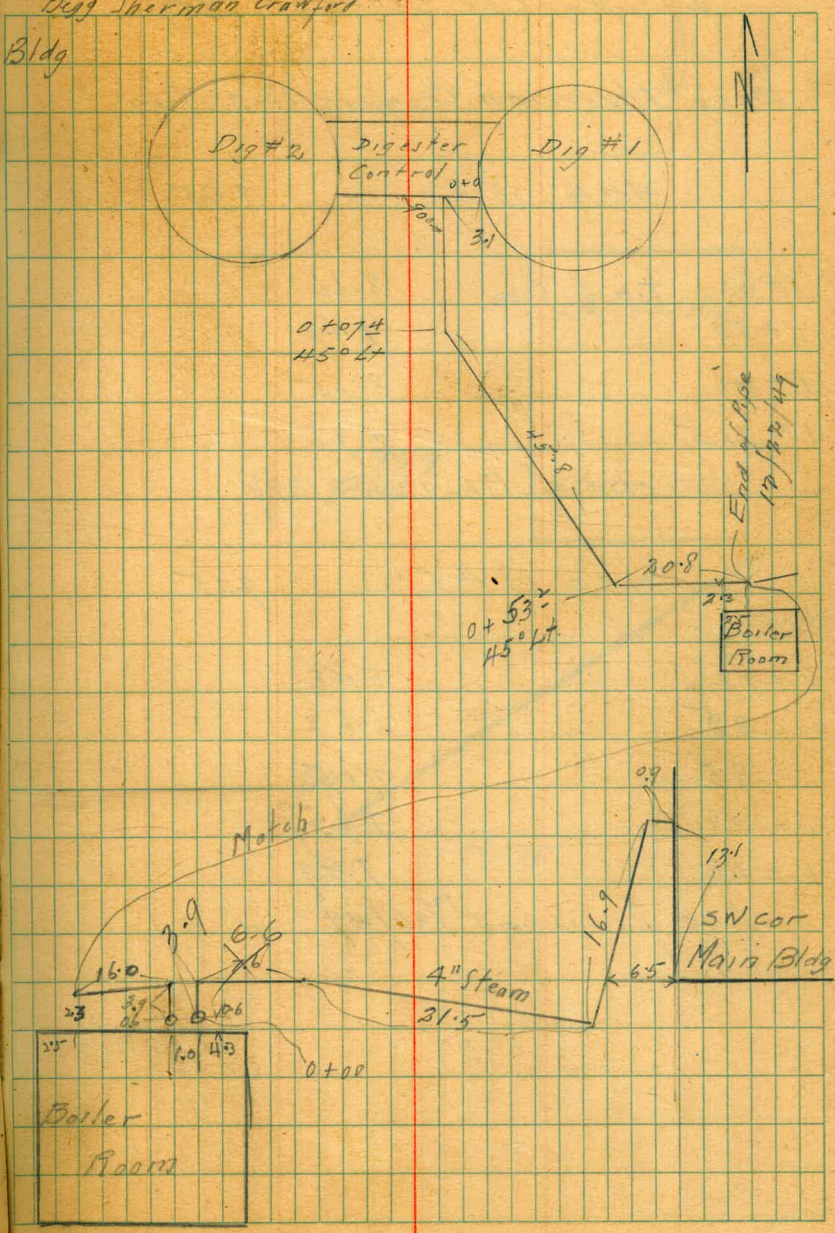 Degg Sherman Crawford
Bldg
N
Dig #2
Digester
Control
Dig #1
0+0
90°
3.1
0+07 4
45° Lt
45.8
End of Pipe
12/22/49
20.8
2.3
0+53 2
45° Lt.
2.5
Boiler
Room
Match
0.9
13.1
3.9
6.6
7.6
16.0
16.9
SW Cor
Main Bldg
4" Steam
6.5
21.5
2.3
3.9
0.6
0.6
2.5
1.0
4.3
0+00
Boiler
Room